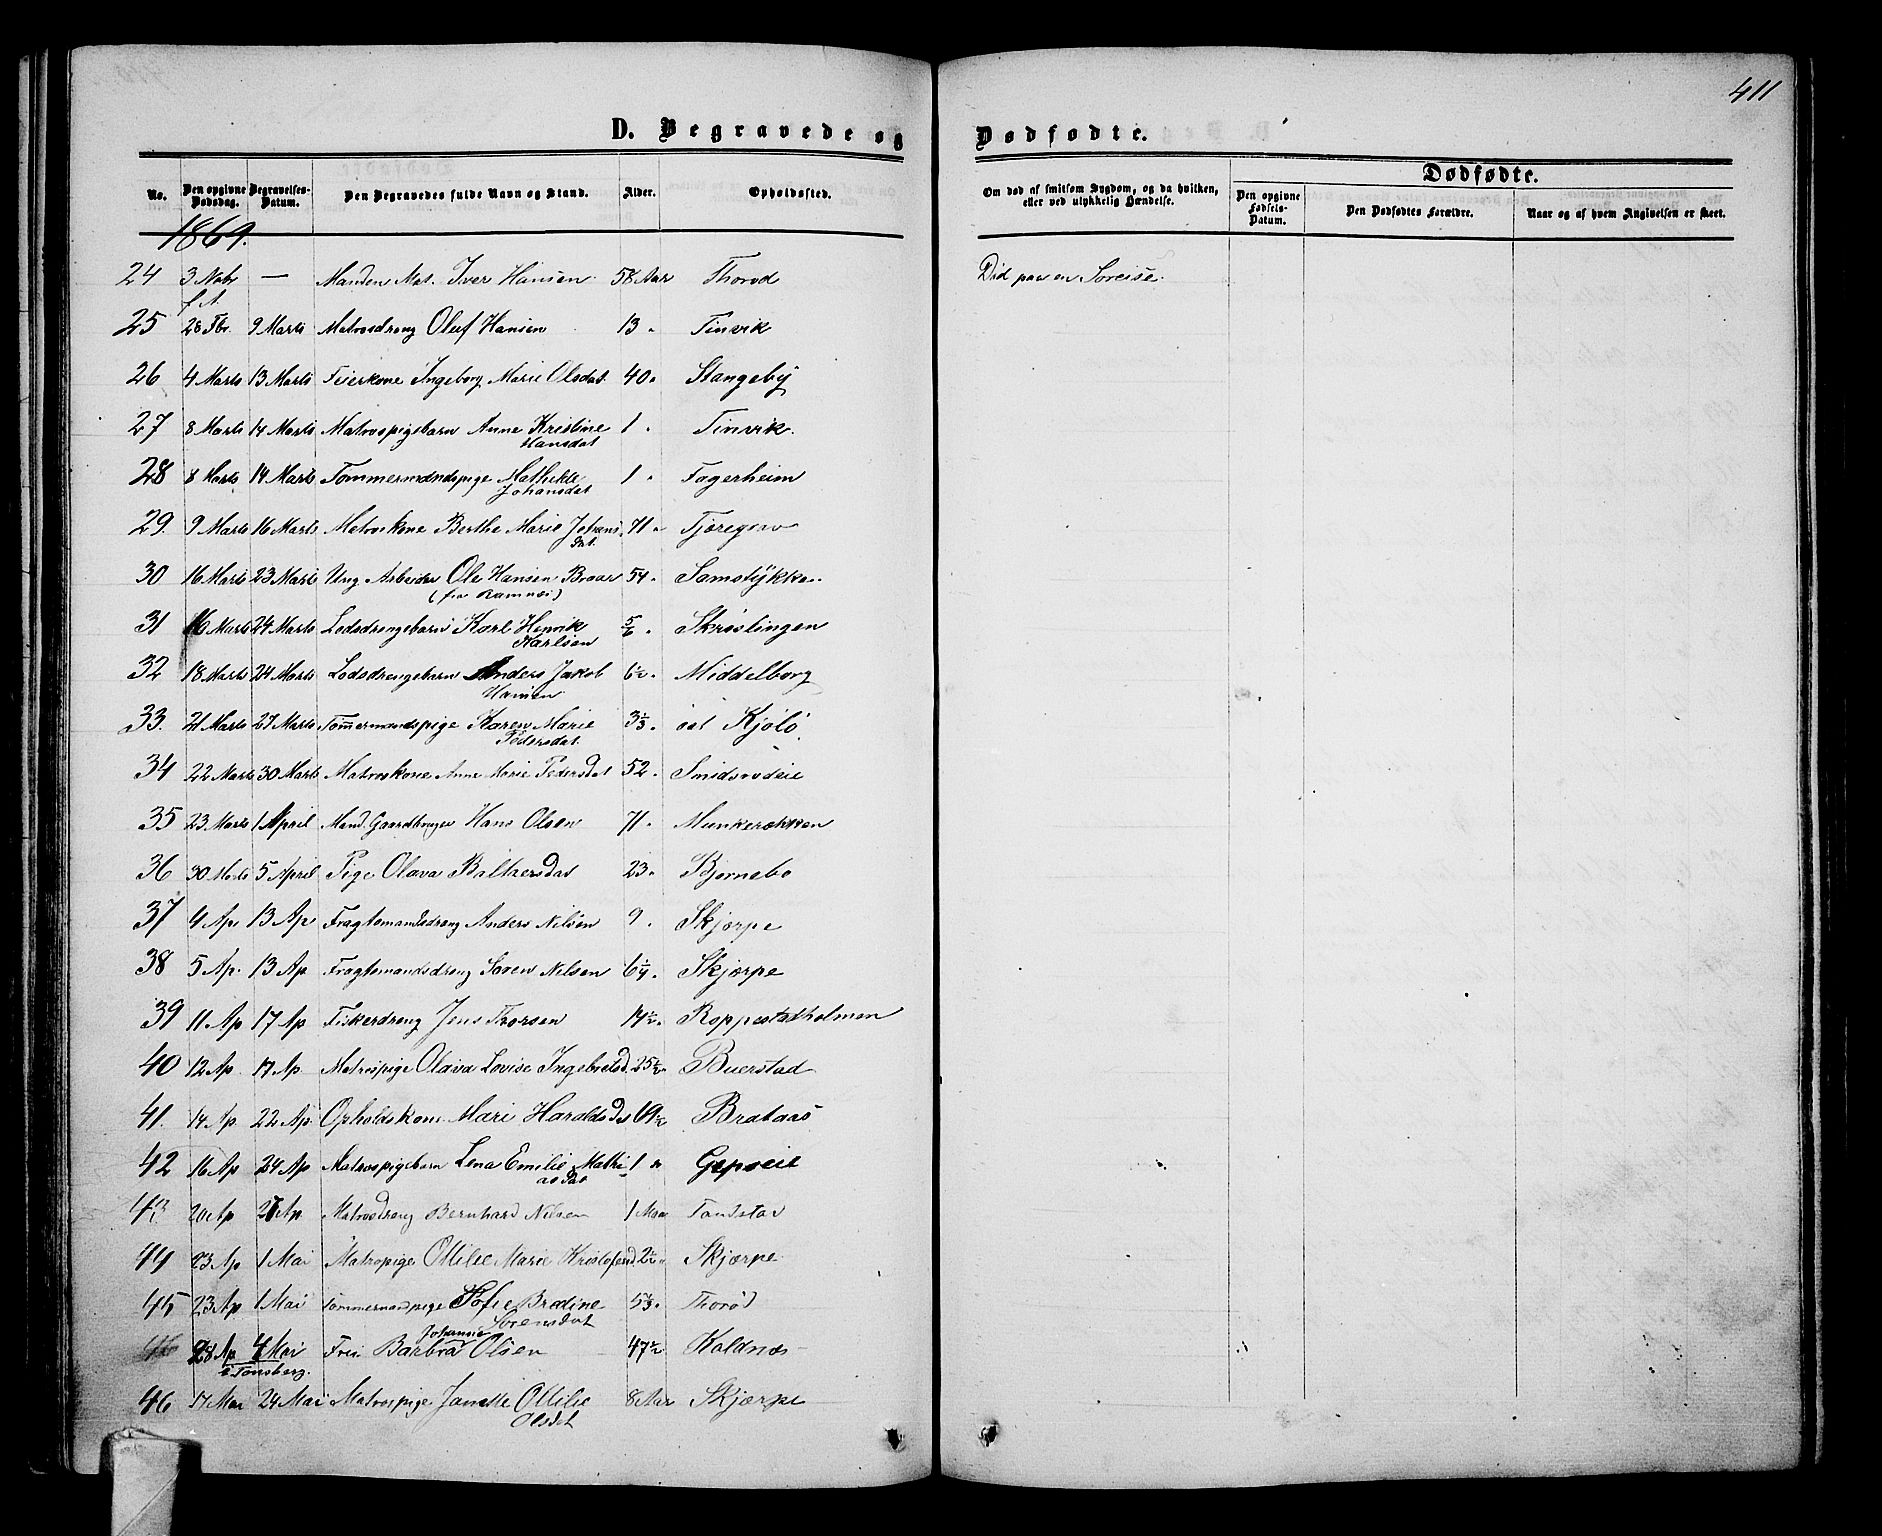 411
D. Begravede og
Dødfødte.
No. Den opgivne Dødsdag. Begravelses-Datum. Den Begravedes fulde Navn og Stand. Alder. Opholdssted.
Om død af smitsom Sygdom, og da hvilken, eller ved ulykkelig Hændelse.
Dødfødte.
Den opgivne Fødsels-Datum. Den Dødfødtes Forældre. Naar og af hvem Angivelsen er skeet.
1869.
24 3 Nobr f.A. — Manden Mat. Iver Hansen 58 Aar Thorød Død paa en Søreise.
25 28 Fbr. 9 Marts Matrosdreng Oluf Hansen 13 " Tinvik
26 4 Marts 13 Marts Feierkone Ingeborg Marie Olsdat. 40 " Stangeby
27 8 Marts 14 Marts Matrospigebarn Anne Kristine 1 " Tinvik.
Hansdat
28 8 Marts 14 Marts Tømmermandspige Mathilde 1 " Fagerheim
Johansdat
29. 9 Marts 16 Marts Matroskone Berthe Marie Johans 71 " Tjæregrav
dat.
30 16 Marts 23 Marts Ung. Arbeider Ole Hansen Braar 54 " Samstykke
(fra Ramnæs)
31 16 Marts 24 Marts Lodsdrengebarn Karl Henrik 5/6 " Skrøslingen
Karlsen
32 18 Marts 24 Marts Lodsdrengebarn Anders Jakob 6½ " Middelborg
Hansen
33. 21 Marts 27 Marts Tømmermandspige Karen Marie 3⅓ " øst Kjølø
Pedersdat.
34 22 Marts 30 Marts Matroskone Anne Marie Pedersdat 52 " Smidsrødeie
35 23 Marts 1 April Mand. Gaardbruger Hans Olsen 71 " Munkerekken
36 30 Marts 5 April Pige Olava Baltzersdat 23 " Bjørnebo
37 4 Ap. 13 Ap Fragtemandsdreng Anders Nilsen 9 " Skjærpe
38 5 Ap. 13 Ap Fragtemandsdreng Søren Nilsen 6¼ " Skjærpe
39 11 Ap 17 Ap Fiskerdreng Jens Thorsen 14½ " Roppestadholmen
40 12 Ap. 17 Ap. Matrospige Olava Lovise Ingebretsd. 25½ Buerstad
41. 14 Ap. 22 Ap. Opholdskone Mari Haraldsdat 69½ Brataas
42 16 Ap 24 Ap Matrospigebarn Lena Emilie Mathi- 1 " Gipøeie
asdat
43 20 Ap 27 Ap. Matrosdreng Bernhard Nilsen 1 Maa Tandstad
44 23 Ap 1 Mai Matrospige Ottilie Marie Kristofersd. 2½ " Skjærpe
45 23 Ap 1 Mai Tømmermandspige Sofie Bredine 5⅔ " Thorød
Sørensdat
46 28 Ap 4 Mai Frei Barbra Johannie Olsen 47½ Kaldnæs
i Tønsberg.
46 17 Mai 24 Mai Matrospige Janette Ottilie 8 Aar Skjærpe
Olsdat